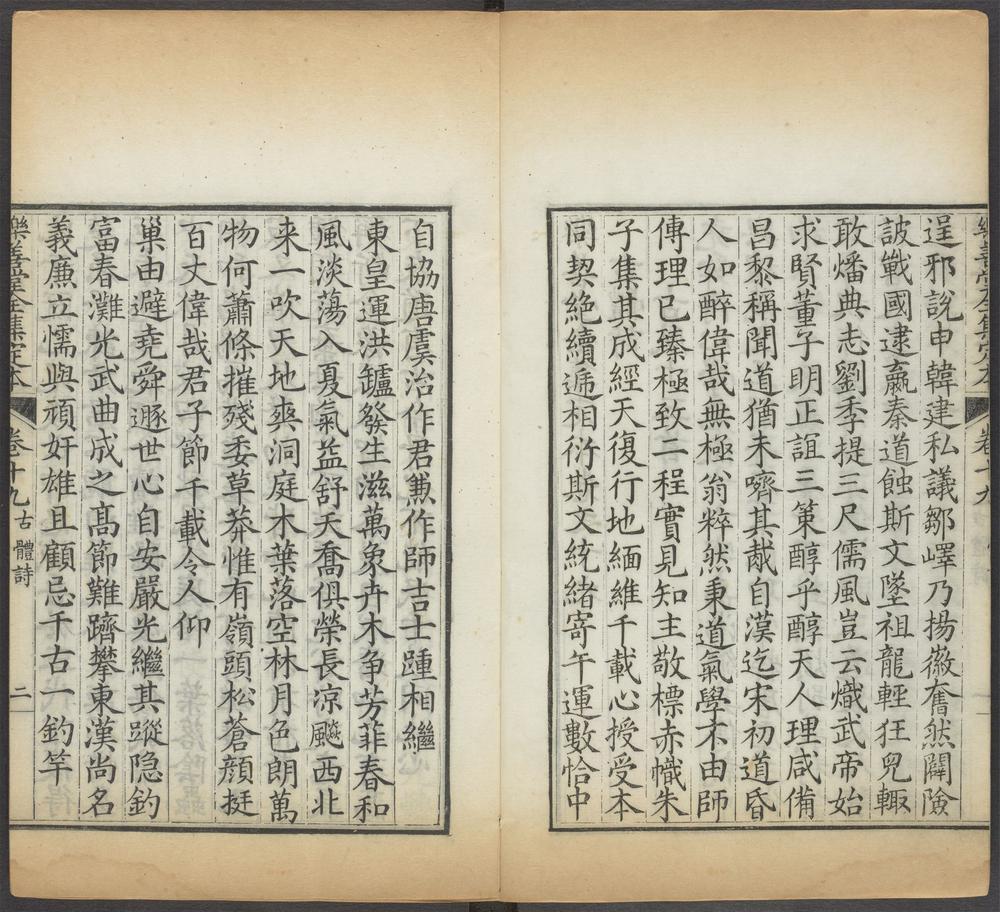 逞邪說申韓建私議鄒嶧乃揚徽奮然闢險
詖戰國逮嬴秦道蝕斯文墜祖龍輕狂兒輙
敢燔典志劉季提三尺儒風豈云熾武帝始
求賢董子明正誼三策醇乎醇天人理咸備
昌黎稱聞道猶未嚌其胾自漢迄宋初道昏
人如醉偉哉無極翁粹然秉道氣學不由師
傳理已臻極致二程實見知主敬標赤幟朱
子集其成經天復行地緬維千載心授受本
同契絕續遞相衍斯文統緒寄午運數恰中
自協唐虞治作君兼作師吉士踵相繼
東皇運洪鑪發生滋萬象卉木争芳菲春和
風淡蕩入夏氣益舒夭喬俱榮長凉飈西北
来一吹天地爽洞庭木葉落空林月色朗萬
物何蕭條摧殘委草莽惟有嶺頭松蒼顔挺
百丈偉哉君子節千載令人仰
巢由避堯舜遯世心自安嚴光繼其蹤隐釣
富春灘光武曲成之髙節難躋攀東漢尚名
義廉立懦與頑奸雄且顧忌千古一釣竿
樂善堂全集定本 卷十九 古體詩 二